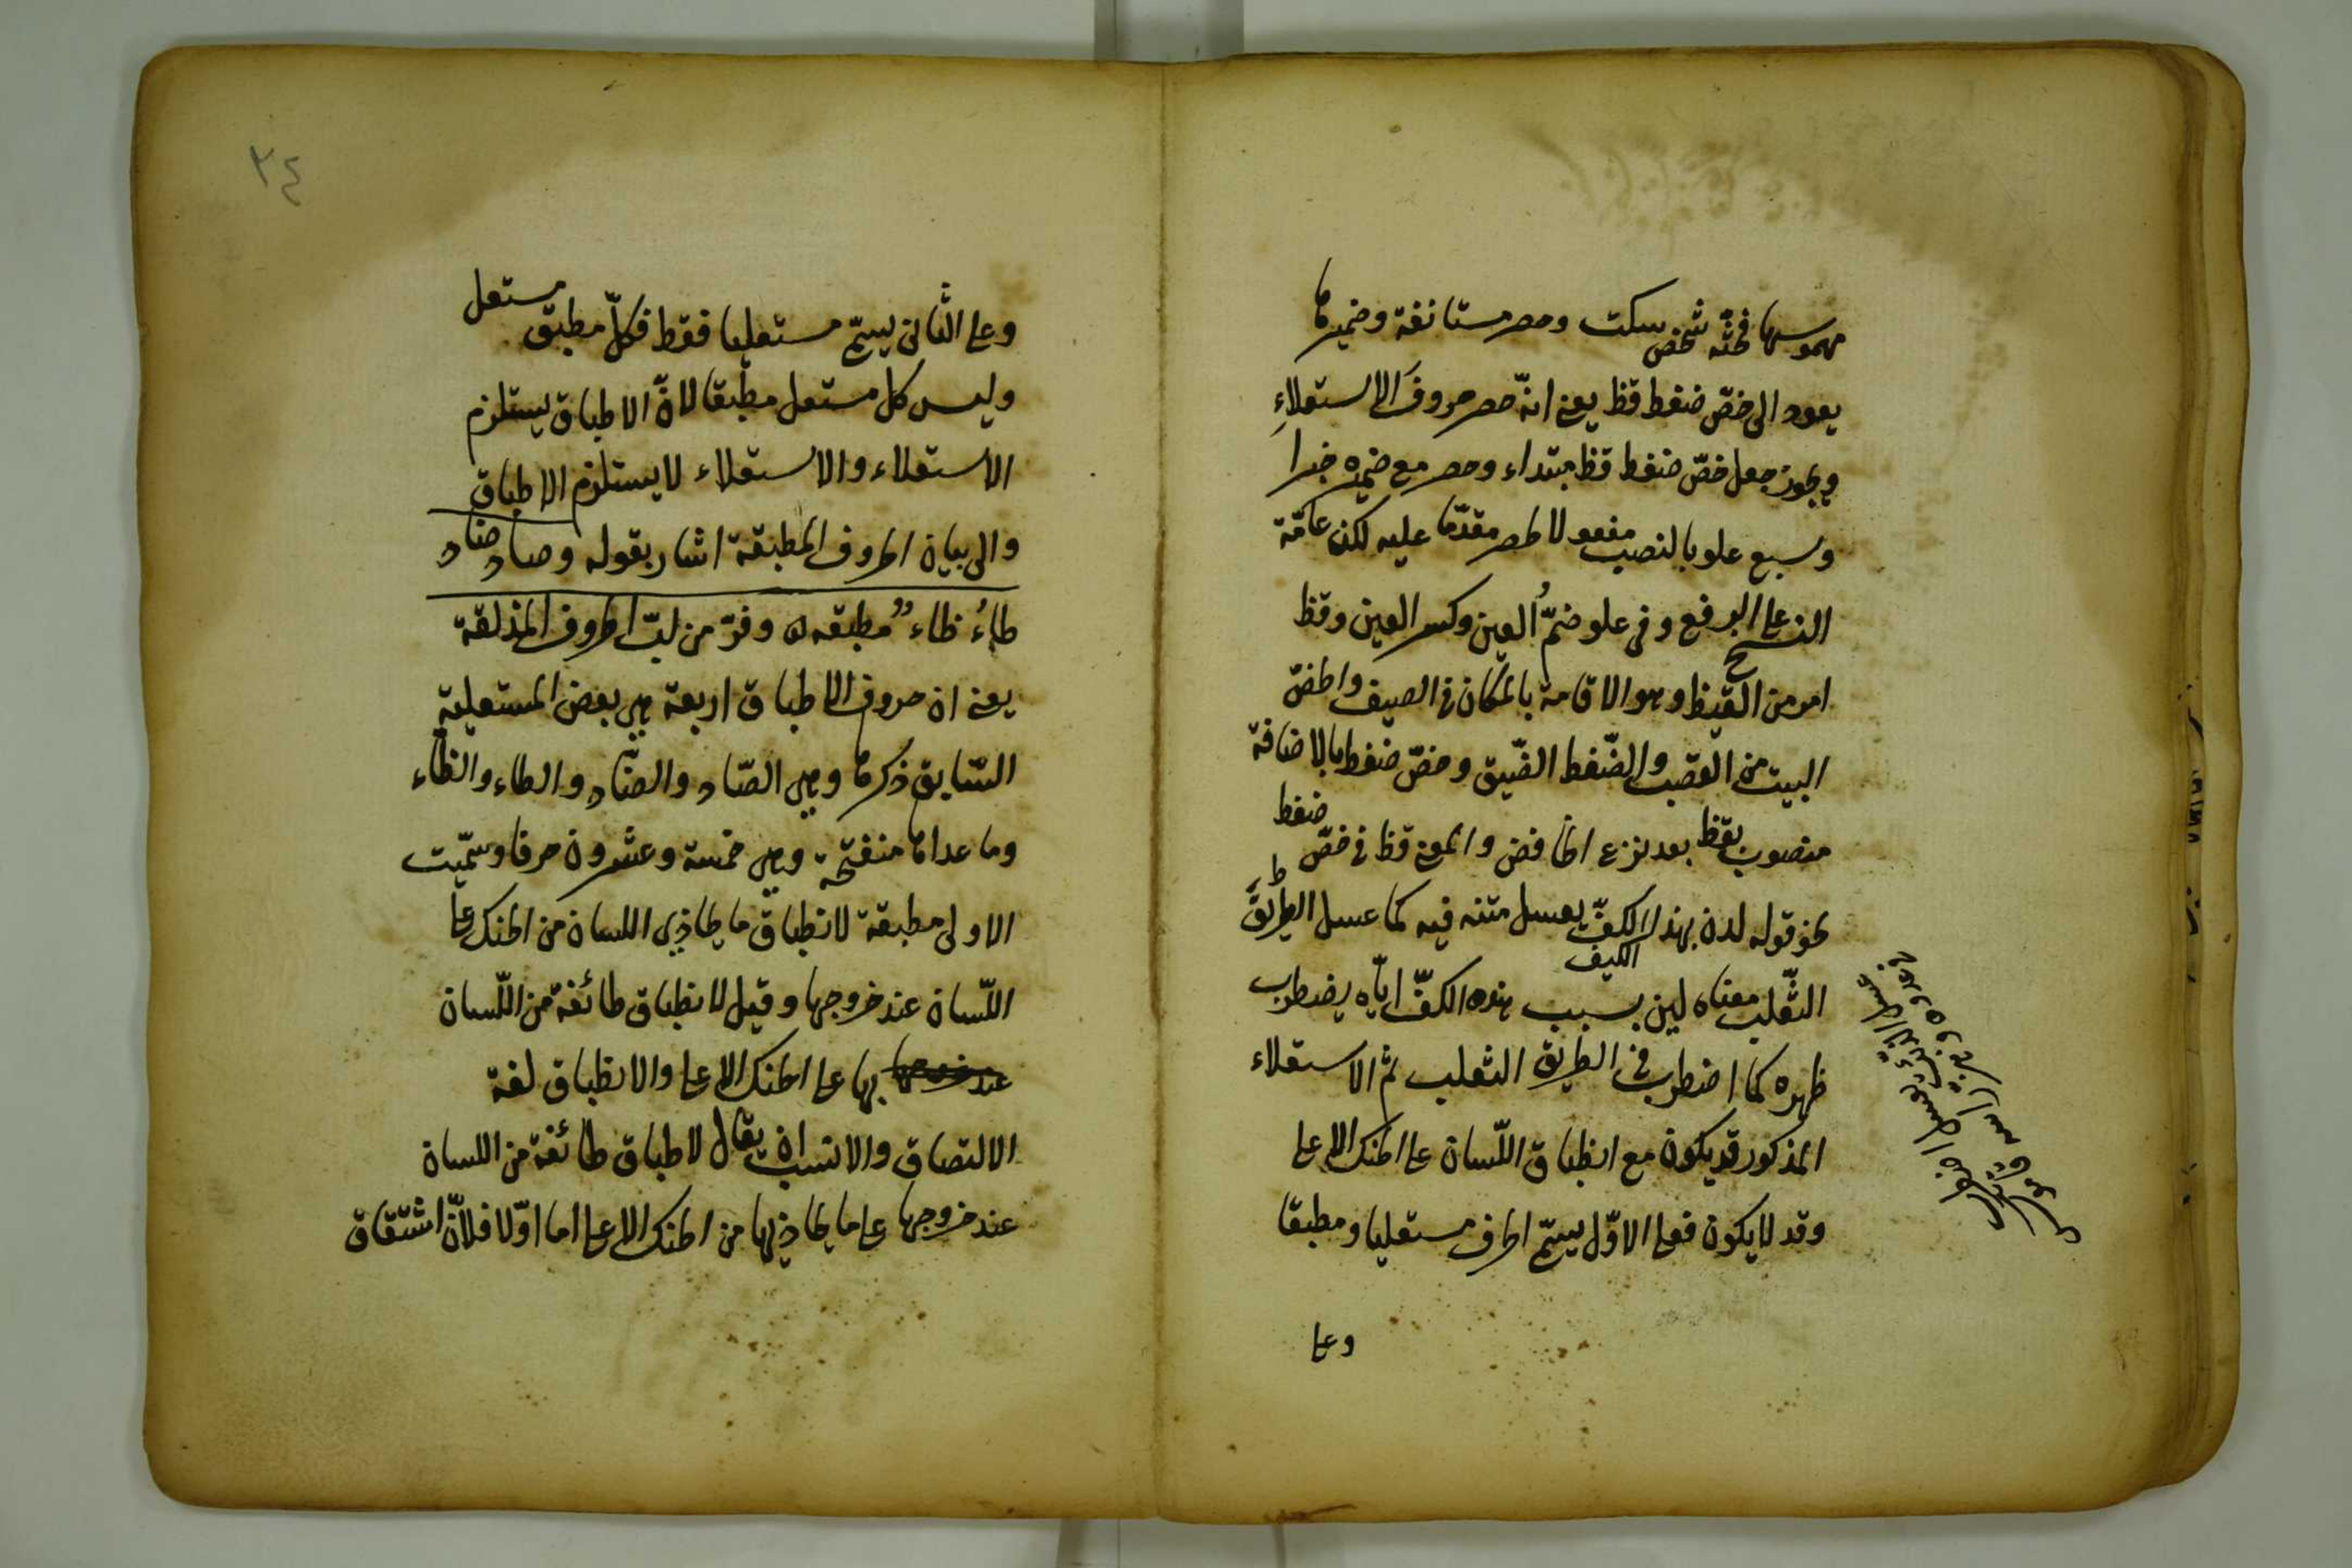 مهموسها فحثه شخص سكت وحصر مستانفة وضميرها
يعود الى خصّ ضغط قظ يعني انّه حصر حروف الاستعلاءِ
ويجوز جعل خصّ ضغط قظ مبتداء وحصر مع ضميره خبرا
وسبع علو بالنصب مفعولا لحصر مقدّما عليه لكن عامّة
النسخ على الرفع وفي علو ضمُّ العين وكسر العين وقظ
امر من القيظ وهو الاقامة بالمكان في الصيف والخصّ
البيت من القصب والضّغط الضّيق وخصّ ضغط بالاضافة
منصوب بقظ بعد نزع الخافض والمعنى قظ في خصّ ضغط
نحو قوله لدن بهذا الكفّ يعسل متنه فيه كما عسل الطريق ط
الكيف
الثّعلب معناه لين بسبب هذه الكفّ ايّاه يضطرب
ظهره كما اضطرب في الطريق الثعلب ثم الاستعلاء
المذكور قد يكون مع انطباق اللّسان على الحنك الاعلى
وقد لا يكون فعلى الاوّل يسمّى الحرف مستعليا ومطبقا
وعلى
٣٤
وعلى الثّانى يسمّى مستعليا فقط فكلّ مطبق مستعل
وليس كل مستعل مطبقا لانّ الاطباق يستلزم
الاستعلاء والاستعلاء لا يستلزم الاطباق
والى بيان الحروف المطبقة اشار بقوله وصاد ضاد
طاءُ ظاء مطبقه ه وفرّ من لبّ الحروف المذلقة
يعني ان حروف الاطباق اربعة هي بعض المستعلية
السّابق ذكرها وهي الصّاد والضّاد والطاء والظاء
وما عداها منفتحة وهي خمسة وعشرون حرفا وسمّيت
الاولى مطبقة لانطباق ما يحاذي اللسان من الحنك على
اللّسان عند خروجها وقيل لانطباق طائفة من اللّسان
عند خروجها بها على الحنك الاعلى والانطباق لغة
الالتصاق والانسب ان يقال لاطباق طائفة من اللسان
عند خروجها على ما يحاذيها من الحنك الاعلى اما اوّلا فلانّ اشتقاق